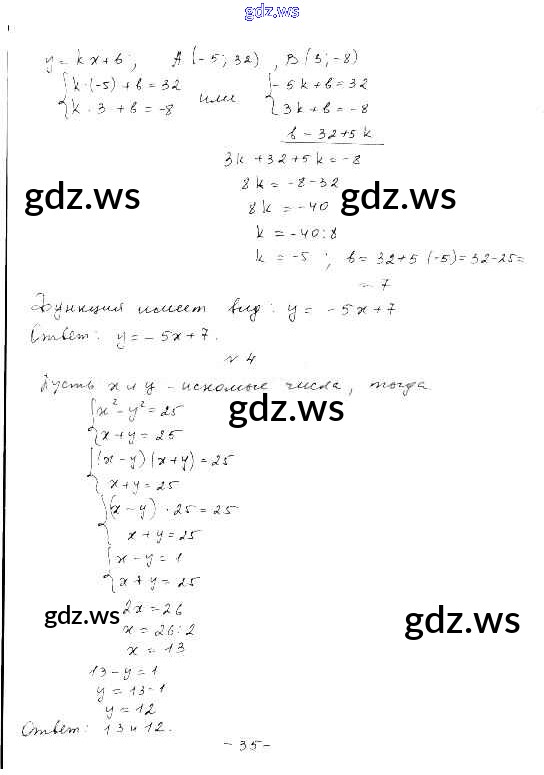 gdz.ws
y = kx + b; A(-5; 32), B(3; -8)
{ k·(-5) + b = 32 или { -5k + b = 32
{ k·3 + b = -8 { 3k + b = -8
b - 32 + 5k
3k + 32 + 5k = -8
8k = -8 - 32
gdz.ws gdz.ws
8k = -40
k = -40 : 8
k = -5; b = 32 + 5(-5) = 32 - 25 =
= 7
Функция имеет вид: y = -5x + 7
Ответ: y = -5x + 7.
№ 4
Пусть x и y - искомые числа, тогда
{ x² - y² = 25
gdz.ws
{ x + y = 25
{ (x - y)(x + y) = 25
{ x + y = 25
{ (x - y)·25 = 25
{ x + y = 25
{ x - y = 1
{ x + y = 25
2x = 26
gdz.ws gdz.ws
x = 26 : 2
x = 13
13 - y = 1
y = 13 - 1
y = 12
Ответ: 13 и 12.
- 35 -